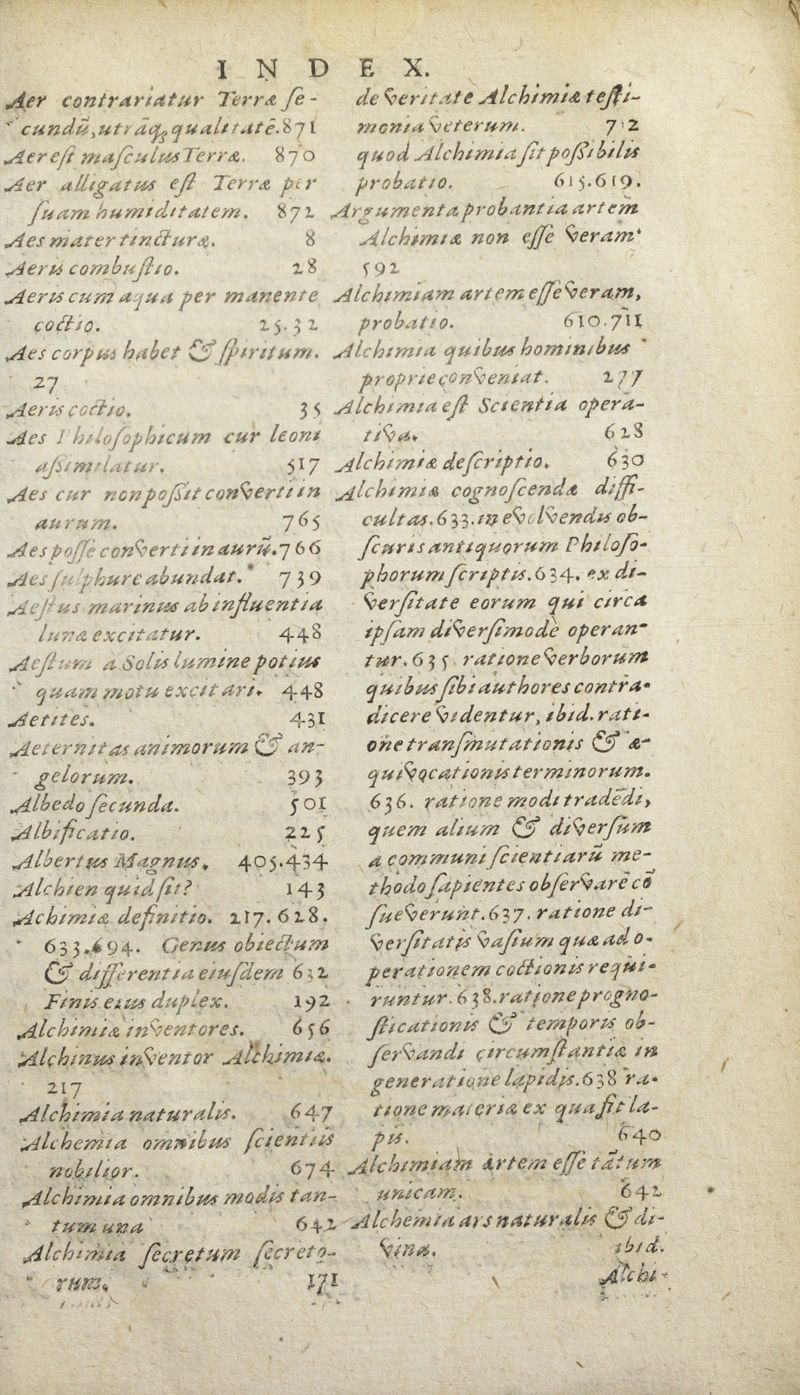 INDEX.
Aer contrariatur Terræ ſe-
cundũ, utrãq; qualitatẽ. 871
Aer eſt maſculus Terræ. 870
Aer alligatus eſt Terræ per
ſuam humiditatem. 872
Aes mater tincturæ. 8
Aeris combuſtio. 28
Aeris cum aqua per manente
coctio. 25.32
Aes corpus habet & ſpiritum.
27
Aeris coctio. 35
Aes Philoſophicum cur leoni
aſsimilatur. 517
Aes cur non poſsit converti in
aurum. 765
Aes poſſe converti in aurũ. 766
Aes ſulphure abundat. 739
Aeſtus marinus ab influentia
lunæ excitatur. 448
Aeſtum a Solis lumine potius
quam motu excitari. 448
Aetites. 431
Aeternitas animorum & an-
gelorum. 393
Albedo ſecunda. 501
Albificatio. 225
Albertus Magnus. 405.434
Alchien quid ſit? 143
Achimiæ definitio. 217.628.
633.694. Genus obiectum
& differentia eiuſdem 632
Finis eius duplex. 192
Alchimiæ inventores. 656
Alchinus inventor Alchimiæ.
217
Alchimia naturalis. 647
Alchemia omnibus ſcientiis
nobilior. 674
Alchimia omnibus modis tan-
tum una 642
Alchimia ſecretum ſecreto-
rum. 171
de veritate Alchimiæ teſti-
monia veterum. 712
quod Alchimia ſit poſsibilis
probatio. 615.619.
Argumenta probantia artem
Alchimiæ non eſſe veram
592
Alchimiam artem eſſe veram,
probatio. 610.711
Alchimia quibus hominibus
proprie conveniat. 177
Alchimia eſt Scientia opera-
tiva. 628
Alchimiæ deſcriptio. 630
Alchimiæ cognoſcendæ diffi-
cultas. 633. in evolvendis ob-
ſcuris antiquorum Philoſo-
phorum ſcriptis. 634. ex di-
verſitate eorum qui circa
ipſam diverſimode operan-
tur. 635. ratione verborum
quibus ſibi authores contra-
dicere videntur, ibid. rati-
one tranſmutationis & æ-
quivocationis terminorum.
636. ratione modi tradẽdi,
quem alium & diverſum
a communi ſcientiarũ me-
thodo ſapientes obſervare cõ
ſueverunt. 637. ratione di-
verſitatis vaſium quæ ad o-
perationem coctionis requi-
runtur. 638. ratione progno-
ſticationis & temporis ob-
ſervandi circumſtantiæ in
generatione lapidis. 638 ra-
tione materiæ ex qua ſit la-
pis. 640
Alchimiam artem eſſe tãtum
unicam. 642
Alchemia ars naturalis & di-
vina. ibid.
Alchi-